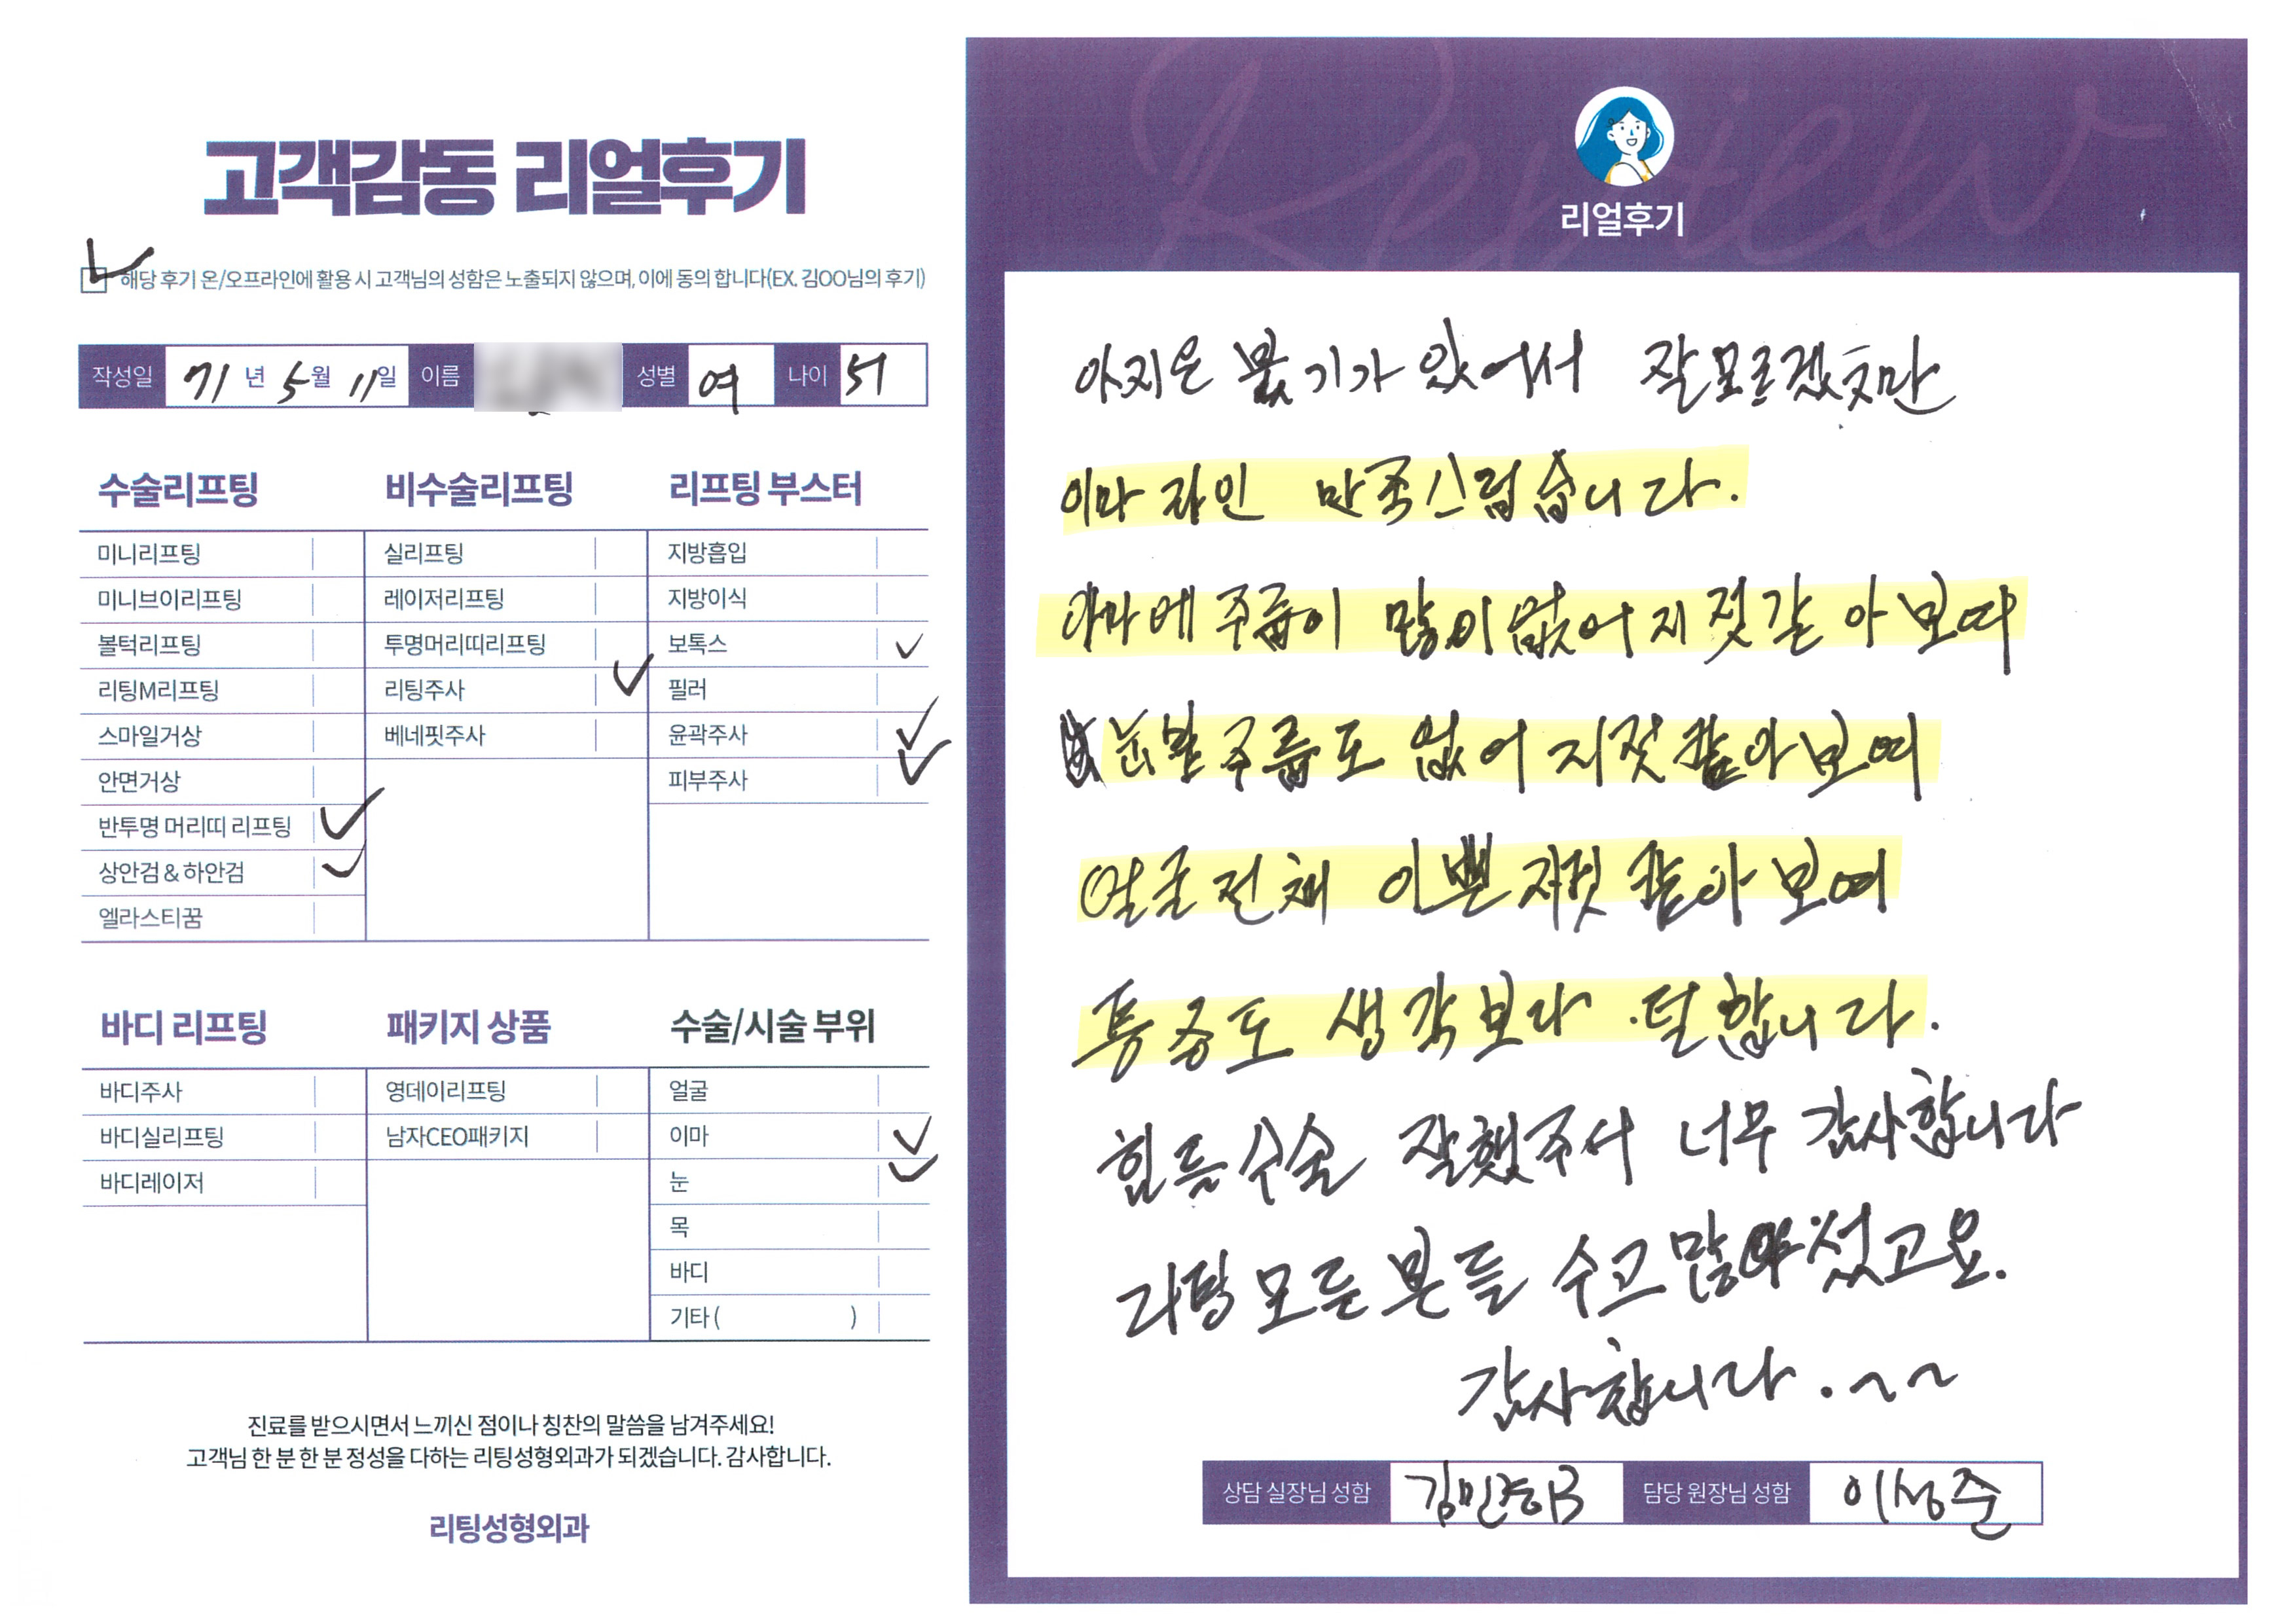 고객감동 리얼후기
해당 후기 온/오프라인에 활용 시 고객님의 성함은 노출되지 않으며, 이에 동의 합니다(EX. 김OO님의 후기)
작성일 71년 5월 11일 이름 성별 여 나이 51
수술리프팅
미니리프팅
미니브이리프팅
볼턱리프팅
리팅M리프팅
스마일거상
안면거상
반투명 머리띠 리프팅
상안검 & 하안검
엘라스티꿈
비수술리프팅
실리프팅
레이저리프팅
투명머리띠리프팅
리팅주사
베네핏주사
리프팅 부스터
지방흡입
지방이식
보톡스
필러
윤곽주사
피부주사
바디 리프팅
바디주사
바디실리프팅
바디레이저
패키지 상품
영데이리프팅
남자CEO패키지
수술/시술 부위
얼굴
이마
눈
목
바디
기타 ( )
진료를 받으시면서 느끼신 점이나 칭찬의 말씀을 남겨주세요!
고객님 한 분 한 분 정성을 다하는 리팅성형외과가 되겠습니다. 감사합니다.
리팅성형외과
Review
리얼후기
아지은 붓기가 있어서 잘모르겠지만
이마 라인 만족스럽습니다.
이마에 주름이 많이 없어지젓같아보여
눈밑 주름도 없어지젓 같아보여
얼굴전체 이쁜져젓 같아보여
통증도 생각보다 덜합니다.
힘든수술 잘했주서 너무 감사합니다
리팅 모든 분들 수고많아섰고요.
감사합니다. ~~
상담 실장님 성함 담당 원장님 성함 이성준